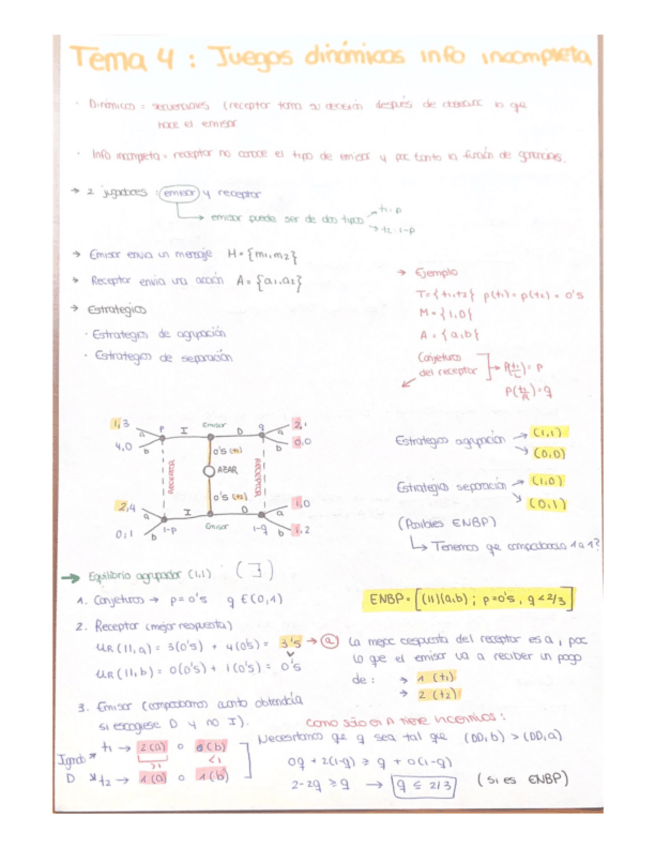 Tema 4 : Juegos dinámicos info incompleta
· Dinámicos = secuenciales (receptor toma su decisión después de observar lo que
hace el emisor
· Info incompleta = receptor no conoce el tipo de emisor y por tanto la función de ganancias.
→ 2 jugadores : emisor y receptor
→ emisor puede ser de dos tipos → t1: p
→ t2: 1-p
→ Emisor envia un mensaje M = {m1, m2}
→ Receptor envia una acción A = {a1, a2}
→ Estrategias
· Estrategias de agrupación
· Estrategias de separación
→ Ejemplo
T = { t1, t2 } p(t1) = p(t2) = 0'5
M = { I, D }
A = { a, b }
Conjeturas
del receptor
→ P(t1/I) = p
P(t1/D) = q
1,3 a P I Emisor D q a 2,1
4,0 b 0'5 (t1) b 0,0
RECEPTOR AZAR RECEPTOR
2,4 a I 0'5 (t2) D a 1,0
0,1 b 1-p Emisor 1-q b 1,2
Estrategias agrupación → (I,I)
→ (D,D)
Estrategias separación → (I,D)
→ (D,I)
(Posibles ENBP)
→ Tenemos que comprobarlo 1 a 1
→ Equilibrio agrupador (I,I) (∃)
1. Conjeturas → p = 0'5 q ∈ (0,1)
ENBP = [(II)(a,b) ; p=0'5, q<2/3]
2. Receptor (mejor respuesta)
UR (II, a) = 3(0'5) + 4(0'5) = 3'5 → a
v
UR (II, b) = 0(0'5) + 1(0'5) = 0'5
La mejor respuesta del receptor es a, por
lo que el emisor va a recibir un pago
de : → 1 (t1)
→ 2 (t2)
3. Emisor (comprobamos cuanto obtendría
si escogiese D y no I).
Jugando D
t1 → 2(a) o 0(b)
>1 <1
t2 → 1(a) o 1(b)
Como sólo si A tiene incentivos :
Necesitamos que q sea tal que (DD, b) > (DD, a)
0q + 2(1-q) ≥ q + 0(1-q)
2-2q ≥ q → q ≤ 2/3 (si es ENBP)